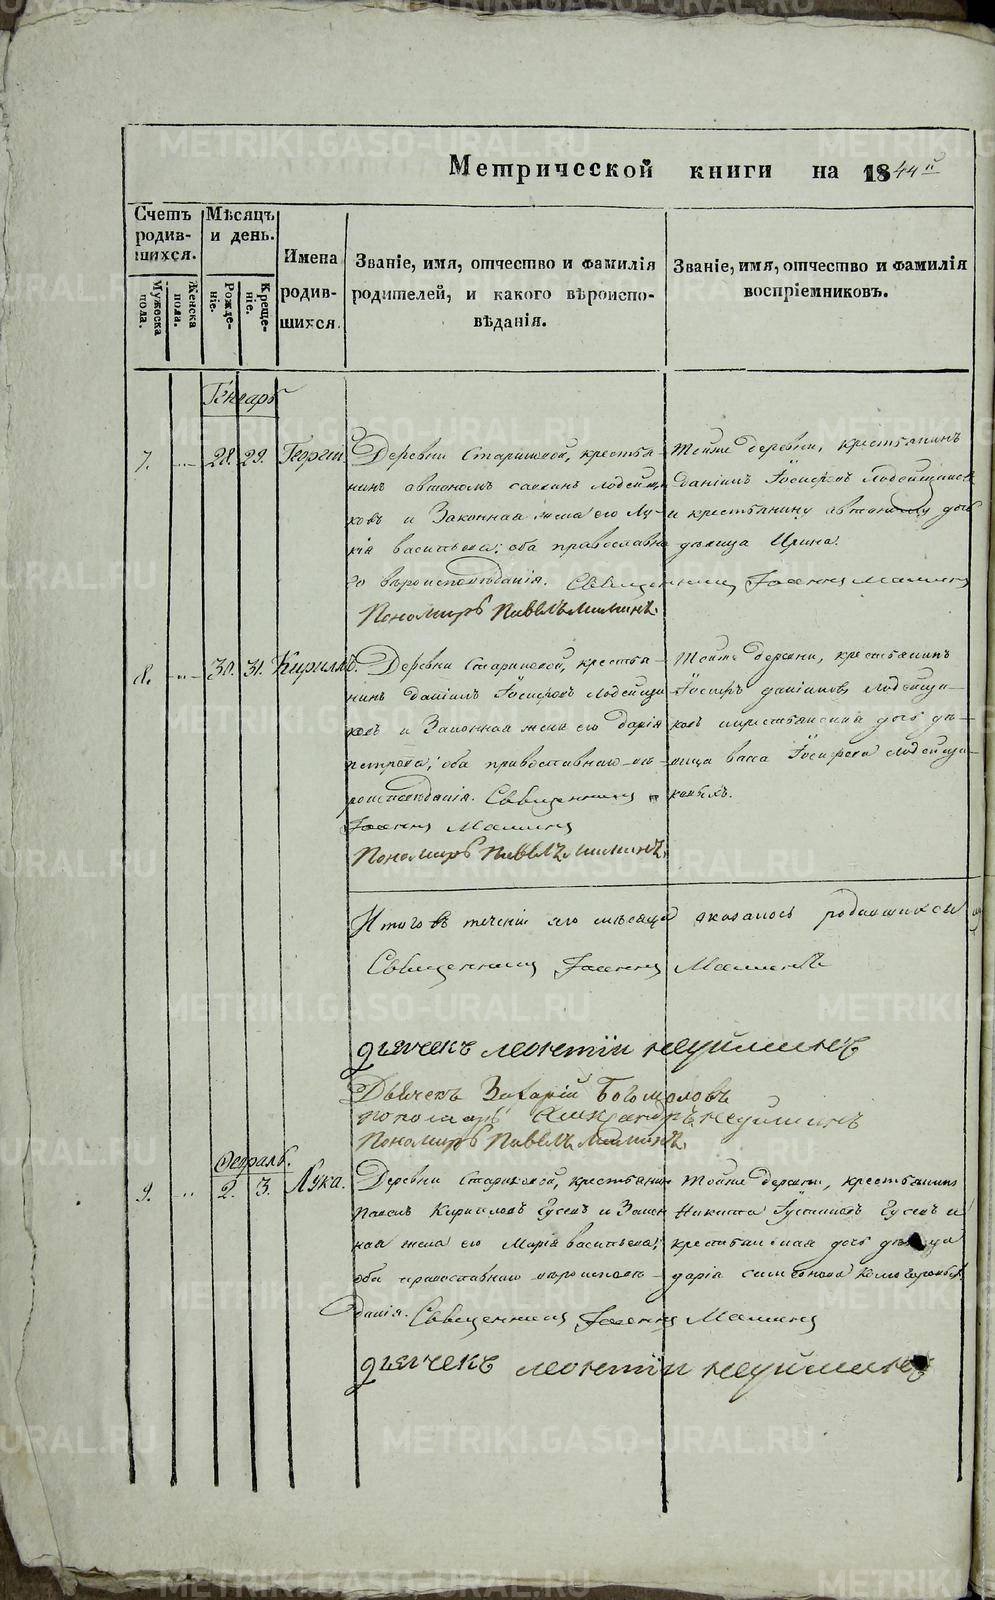 Метрической книги на 1844й
Счетъ родив-шихся.
Мужеска пола.
Женска пола.
Мѣсяцъ и день.
Рожде-ніе.
Креще-ніе.
Имена родив-шихся.
Званіе, имя, отчество и фамилія
родителей, и какого вѣроиспо-
вѣданія.
Званіе, имя, отчество и фамилія
воспріемниковъ.
Генварь
7. 28. 29. Георгій
Деревни Стариковой, крестья-
нинъ автономъ
ковъ и Законная жена его Лу-
кія васильева; оба православна
го вѣроисповѣданія. Священникъ Іоаннъ Маминъ
Пономарь Павелъ Маминъ
Тойже деревни, крестьянинъ
Даніилъ Іосифовъ Лодейщиковъ
и крестьянину автоному дочь
дѣвица Ирина.
8. 30. 31. Кириллъ.
Деревни Стариковой, крестья-
нинъ Даніилъ Іосифовъ Лодейщи
ковъ и Законная жена его Дарія
петрова; оба православнаго вѣ-
роисповѣданія. Священникъ
Іоаннъ Маминъ
Пономарь Павелъ Маминъ
Тойже деревни, крестьянинъ
Іосифъ даніиловъ Лодейщи-
ковъ и крестьянская дочь дѣ-
вица васса Іосифова Лодейщи-
ковыхъ.
Итого въ теченіи сего мѣсяца оказалось родившихся
Священникъ Іоаннъ Маминъ
дьячекъ леонтіи неуйминъ
Дьячекъ Захарій Богомоловъ
пономарь Александръ неуйминъ
Пономарь Павелъ Маминъ
Февраль.
9. 2. 3. Лука.
Деревни Стариковой, крестьянинъ
Павелъ Кириловъ Гусевъ и Закон
ная жена его Марія васильева;
оба православнаго вѣроисповѣ-
данія. Священникъ Іоаннъ Маминъ
дьячекъ леонтіи неуйминъ
Тойже деревни, крестьянинъ
Никита Іустиновъ Гусевъ и
крестьянская дочь дѣвица
дарія симеонова
METRIKI.GASO-URAL.RU